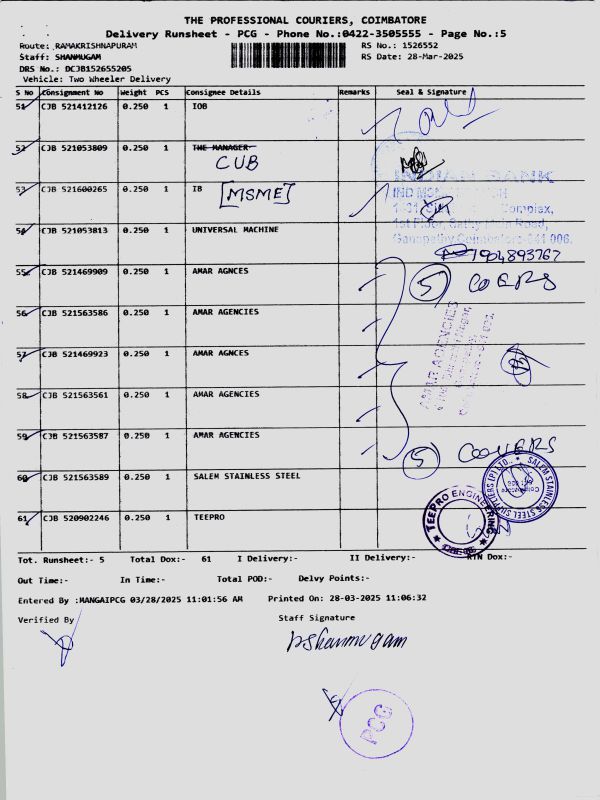 THE PROFESSIONAL COURIERS, COIMBATORE
Delivery Runsheet - PCG - Phone No.:0422-3505555 - Page No.:5
Route: ,RAMAKRISHNAPURAM RS No.: 1526552
Staff: SHANMUGAM RS Date: 28-Mar-2025
DRS No.: DCJB152655205
Vehicle: Two Wheeler Delivery
S No Consignment No Weight PCS Consignee Details Remarks Seal & Signature
51 CJB 521412126 0.250 1 IOB
52 CJB 521053809 0.250 1 THE MANAGER
CUB
INDIAN BANK
53 CJB 521600265 0.250 1 IB [MSME]
Complex,
1st Floor, Sathy Main Road,
54 CJB 521053813 0.250 1 UNIVERSAL MACHINE
Ganapathy Coimbatore-641 006.
7904893767
55 CJB 521469909 0.250 1 AMAR AGNCES
5 COERS
56 CJB 521563586 0.250 1 AMAR AGENCIES
AMAR AGENCIES
57 CJB 521469923 0.250 1 AMAR AGNCES
58 CJB 521563561 0.250 1 AMAR AGENCIES
59 CJB 521563587 0.250 1 AMAR AGENCIES
5 COOVERS
60 CJB 521563589 0.250 1 SALEM STAINLESS STEEL
SALEM STAINLESS STEEL SUPPLIERS (P) LTD.,
61 CJB 520902246 0.250 1 TEEPRO
TEEPRO ENGINEERING
Tot. Runsheet:- 5 Total Dox:- 61 I Delivery:- II Delivery:- RTN Dox:-
Out Time:- In Time:- Total POD:- Delvy Points:-
Entered By :MANGAIPCG 03/28/2025 11:01:56 AM Printed On: 28-03-2025 11:06:32
Verified By Staff Signature
PShanmugam
PCG